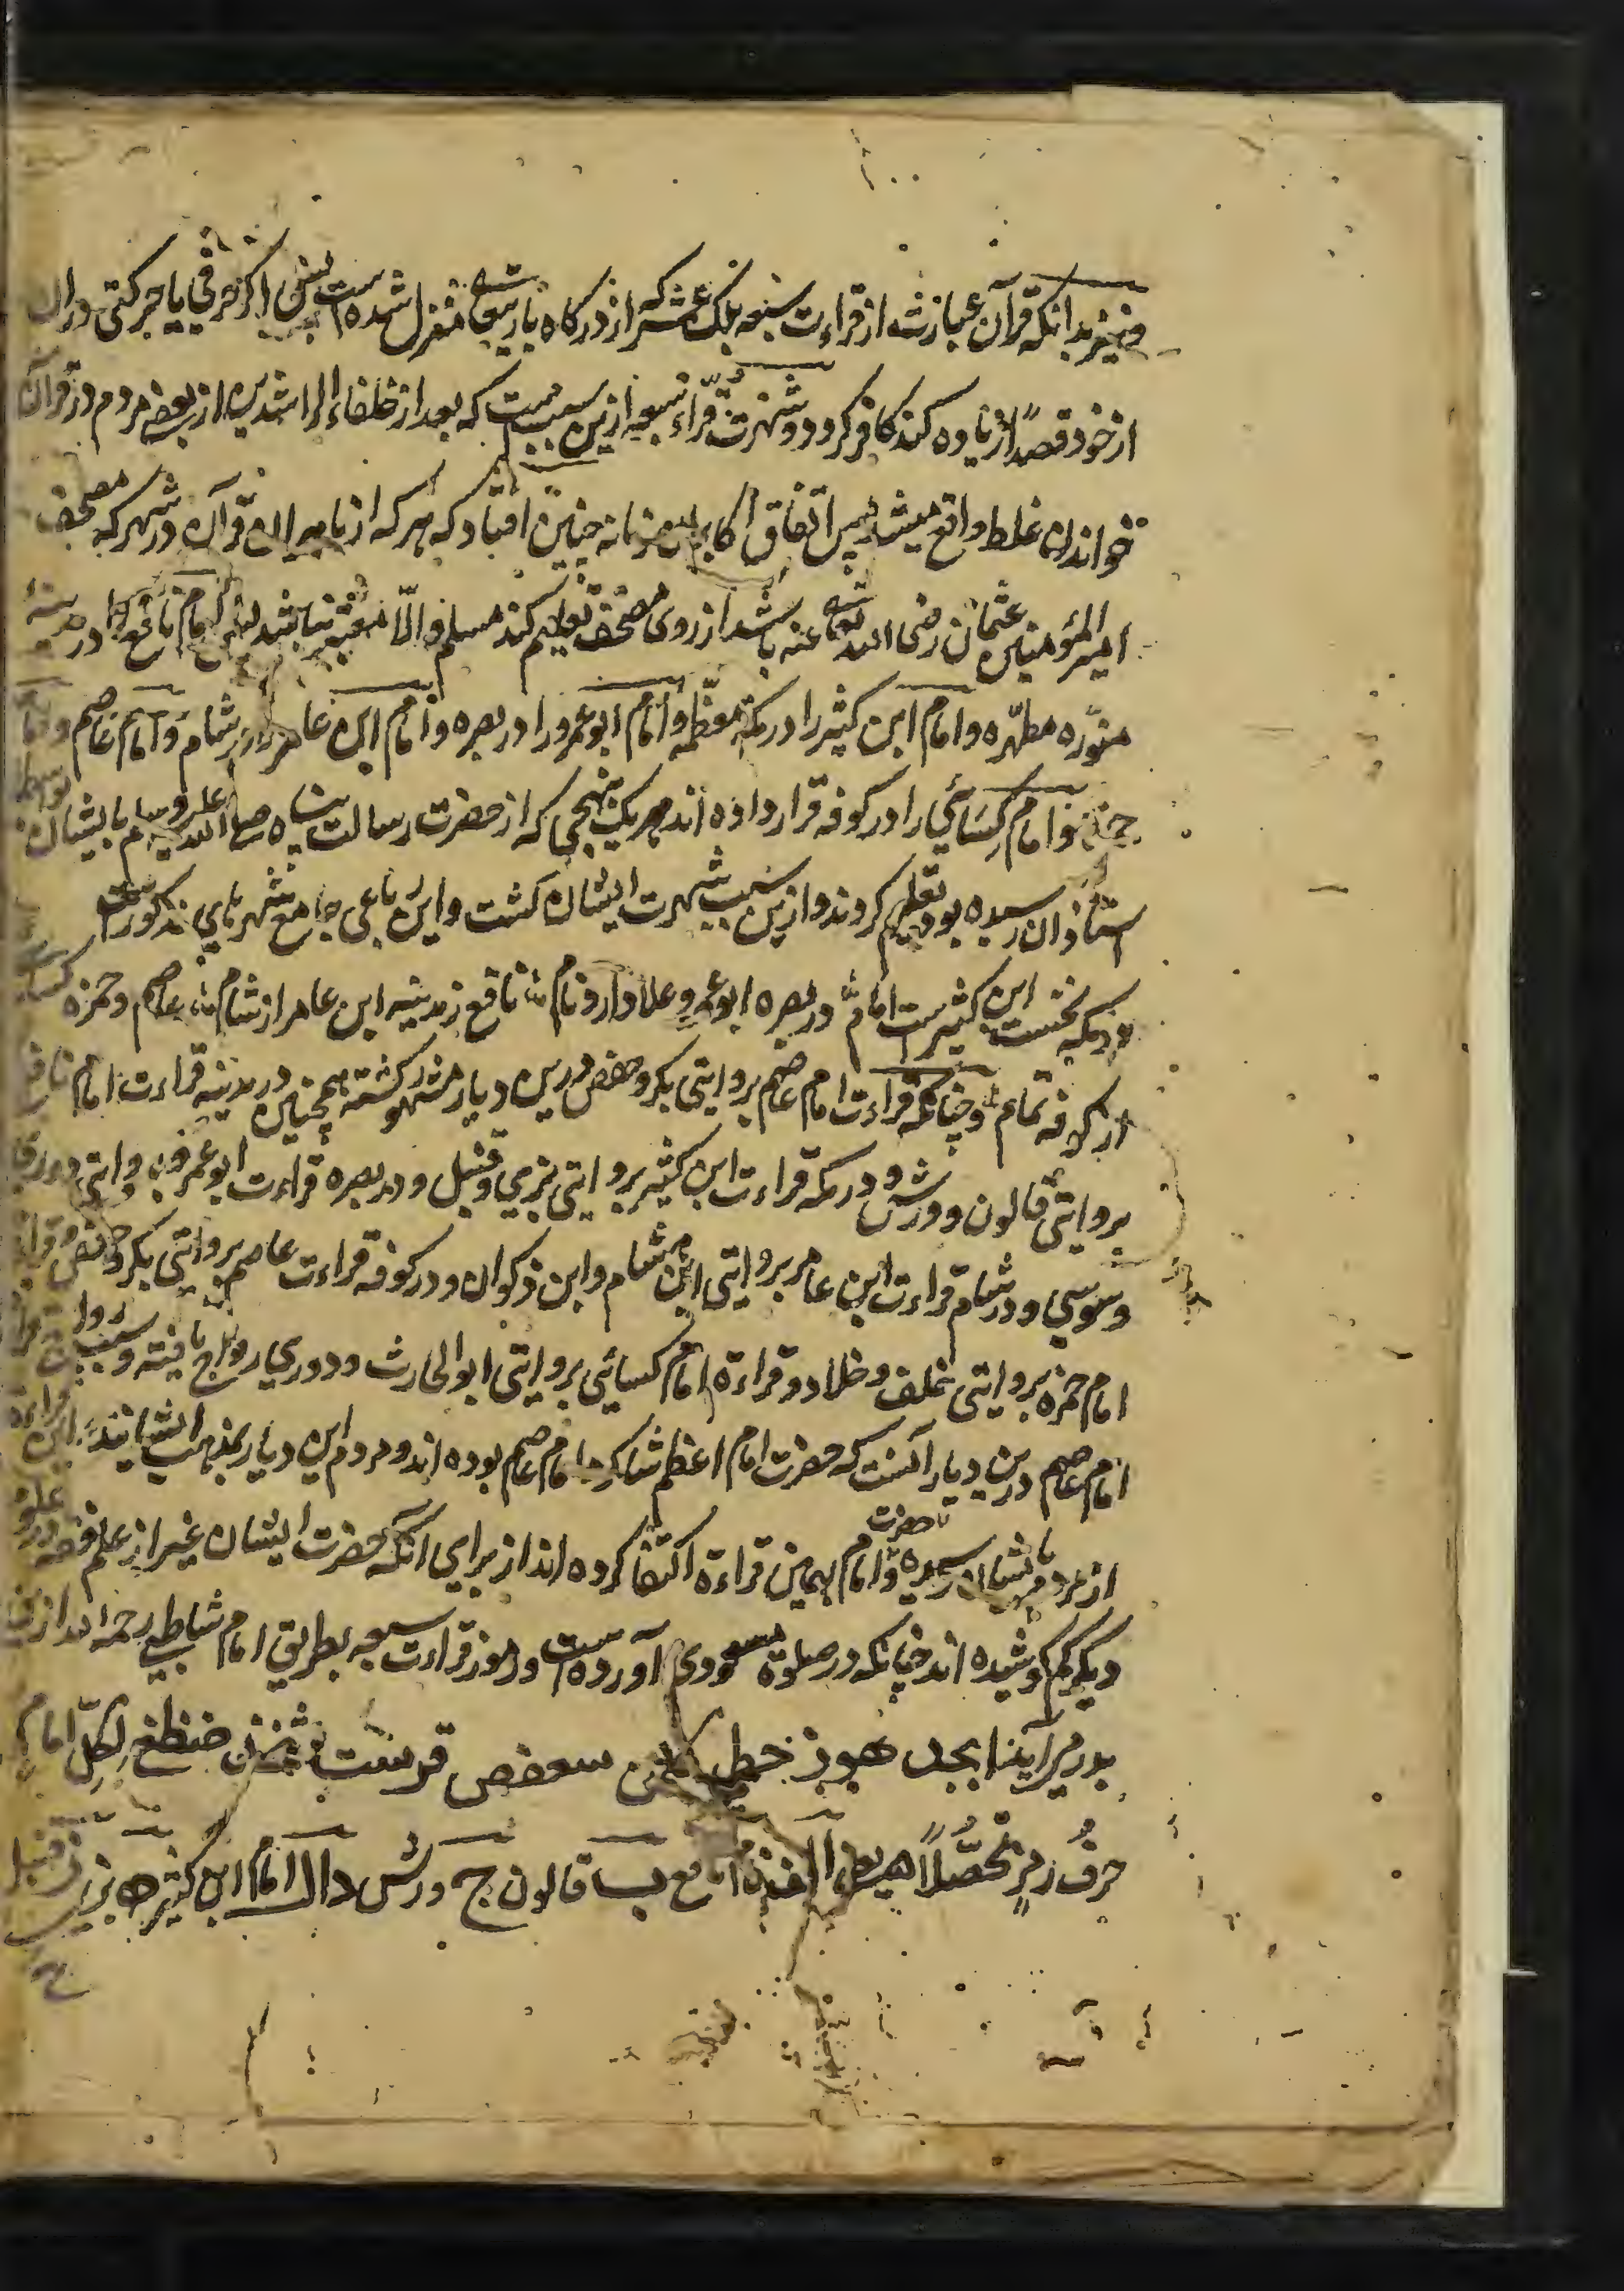 ونیز بدانکه قرآن عبارتست از قراءت سبعه بلک عشر که از درکاه باریتعالی منزل شده است پس اکر حرفی یا حرکتی دران
از خود قصدًا زیاده کند کافر کردد و شهرت قرّاء سبعه ازین سبب است که بعد از خلفاء الراشدین از بعضے مردم در قرآن
خواندن غلط واقع میشد پس اتفاق اکابر زمانه چنین افتاد که هر که از ماهران قرآن در شهر که مصحف
امیر المؤمنین عثمان رضی الله تعالی عنه باشد از روی مصحف تعلیم کند مسلم والّا معتبر نباشد پس امام نافع را در مدینۀ
منوّره مطهّره و امام ابن کثیر را در مکۀ معظّمه و امام ابو عمرو را در بصره و امام ابن عامر را در شام و امام عاصم و امام
حمزه و امام کسائي را در کوفه قرار داده اند هر یک بنهجی که از حضرت رسالت پناه صلی الله علیه وسلم بایشان بواسطۀ
استاذان رسیده بود تعلیم کردند و ازین سبب شهرت ایشان کشت و این رباعی جامع شهرهای مذکور است
در مکه نخست ابن کثیر است امام در بصره ابو عمرو علا دارد نام نافع ز مدینه ابن عامر از شام عاصم و حمزه کسائی
از کوفه تمام و چنانکه قراءت امام عاصم بروایتی بکر و حفص درین دیار مشهور کشته همچنین در مدینه قراءت امام نافع
بروایتی قالون و ورش و در مکه قراءت ابن کثیر بروایتی بزی و قنبل و در بصره قراءت ابو عمرو بروایتی دوری
و سوسي و در شام قراءت ابن عامر بروایتی هشام و ابن ذکوان و در کوفه قراءت عاصم بروایتی بکر و حفص و قراءة
امام حمزه بروایتی خلف و خلاد و قراءة امام کسائي بروایتی ابو الحارث و دوري رواج یافته و سبب رواج قراءة
امام عاصم درین دیار آنست که حضرت امام اعظم شاکرد امام عاصم بوده اند و مردم این دیار بمذهب ایشانند این قراءة
از مردم بایشان رسیده و حضرت امام بهمین قراءة اکتفا کرده اند از برای آنکه حضرت ایشان غیر از علم فقه در علوم
دیکر کم کوشیده اند چنانکه در صلوة مسعودی آورده است و رموز قراءت سبعه بطریق امام شاطبي رحمه الله ازین
ابجد هوز حطي کلمن سعفص قرست ثخذ ضظغ لکلّ امام
حرفُ رمزٍ امام نافع ب قالون ج ورش دال امام ابن کثیر ه بزی ز قنبل
ح